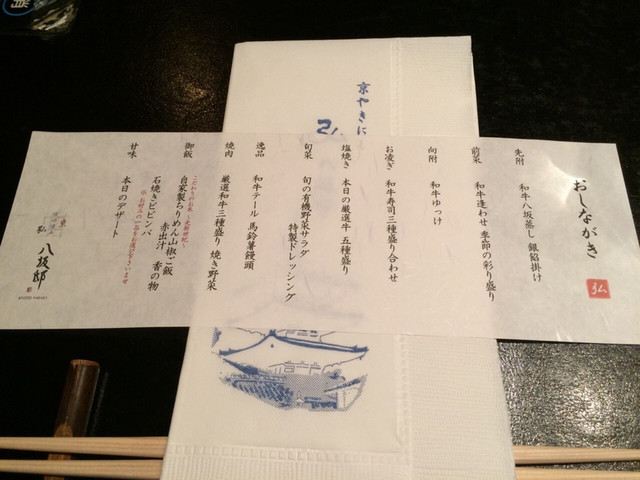 おしながき
弘
先附
和牛八坂蒸し 銀餡掛け
前菜
和牛逢わせ 季節の彩り盛り
向附
和牛ゆっけ
お凌ぎ
和牛寿司三種盛り合わせ
塩焼き
本日の厳選牛 五種盛り
旬菜
旬の有機野菜サラダ
特製ドレッシング
逸品
和牛テール 馬鈴薯饅頭
焼肉
厳選和牛三種盛り 焼き野菜
御飯
こだわりのお米
自家製ちりめん山椒ご飯
赤出汁 香の物
石焼きビビンバ
甘味
本日のデザート
弘
八坂邸
京やきに